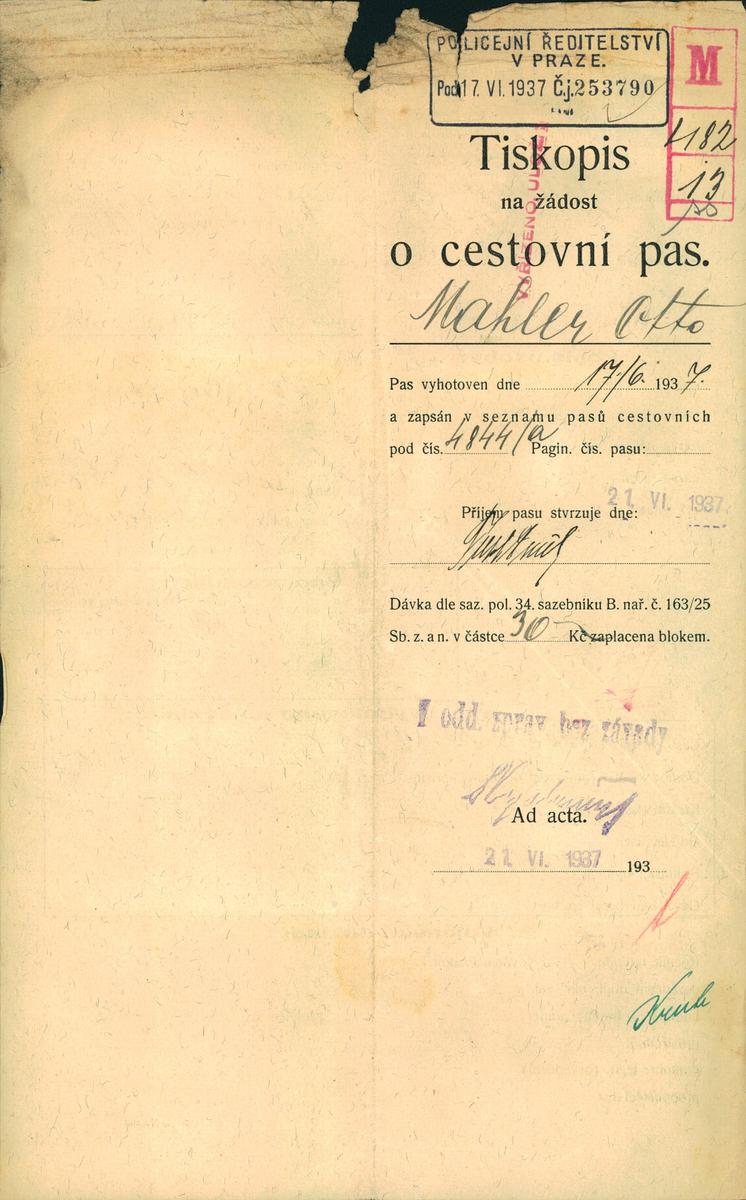 POLICEJNÍ ŘEDITELSTVÍ
V PRAZE.
Pod. 17. VI. 1937 Č.j. 253790
M
4182
13
Tiskopis
na žádost
o cestovní pas.
Mahler Otto
Pas vyhotoven dne 17/6. 1937.
a zapsán v seznamu pasů cestovních
pod čís. 4844/a Pagin. čís. pasu:
21. VI. 1937
Příjem pasu stvrzuje dne:
Dávka dle saz. pol. 34. sazebníku B. nař. č. 163/25
Sb. z. a n. v částce 30 Kč zaplacena blokem.
I odd. zprav bez závady
Ad acta.
21. VI. 1937 193